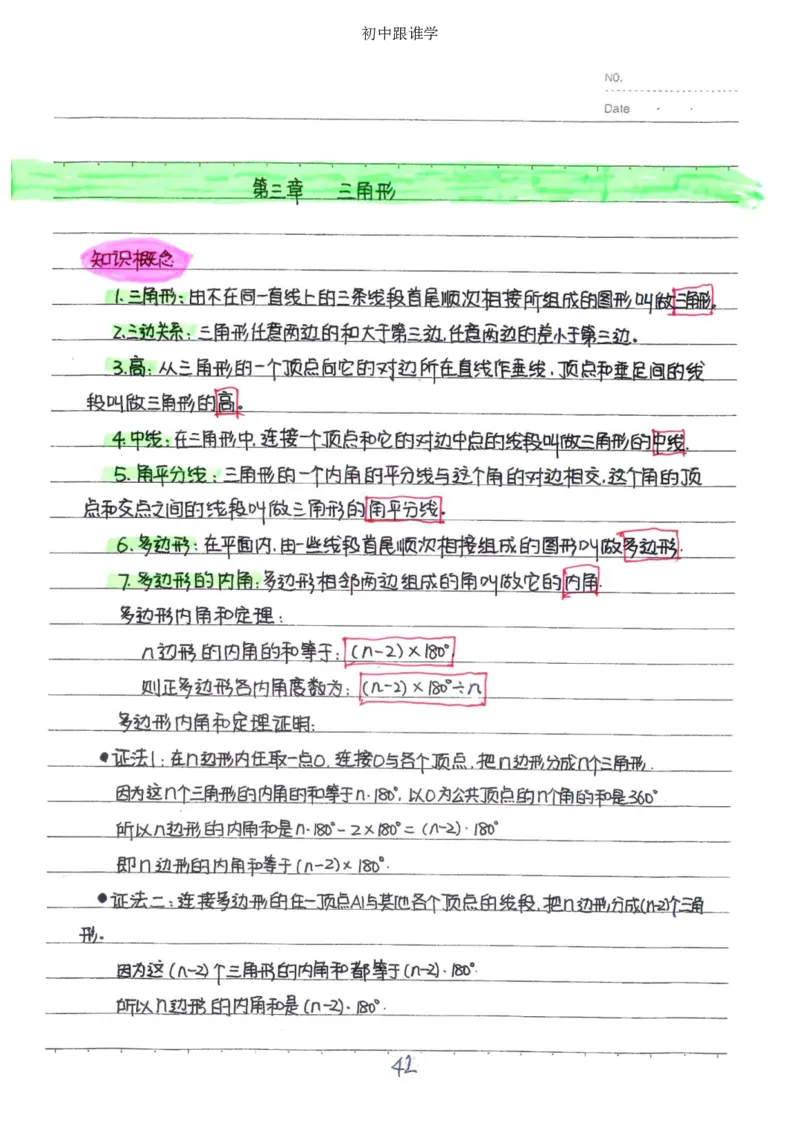 初中跟谁学
NO.
Date
第三章 三角形
知识概念
1.三角形：由不在同一直线上的三条线段首尾顺次相接所组成的图形叫做三角形。
2.三边关系：三角形任意两边的和大于第三边,任意两边的差小于第三边。
3.高：从三角形的一个顶点向它的对边所在直线作垂线，顶点和垂足间的线
段叫做三角形的高。
4.中线：在三角形中,连接一个顶点和它的对边中点的线段叫做三角形的中线.
5.角平分线：三角形的一个内角的平分线与这个角的对边相交,这个角的顶
点和交点之间的线段叫做三角形的角平分线。
6.多边形：在平面内,由一些线段首尾顺次相接组成的图形叫做多边形.
7.多边形的内角：多边形相邻两边组成的角叫做它的内角.
多边形内角和定理：
n边形的内角的和等于：(n-2)×180°
则正多边形各内角度数为：(n-2)×180°÷n
多边形内角和定理证明：
●证法1：在n边形内任取一点O,连接O与各个顶点,把n边形分成n个三角形.
因为这n个三角形的内角的和等于n·180°,以O为公共顶点的n个角的和是360°
所以n边形的内角和是n·180°-2×180°=(n-2)·180°
即n边形的内角和等于(n-2)×180°.
●证法二：连接多边形的任一顶点A1与其他各个顶点的线段,把n边形分成(n-2)个三角
形。
因为这(n-2)个三角形的内角和都等于(n-2)·180°.
所以n边形的内角和是(n-2)·180°.
42